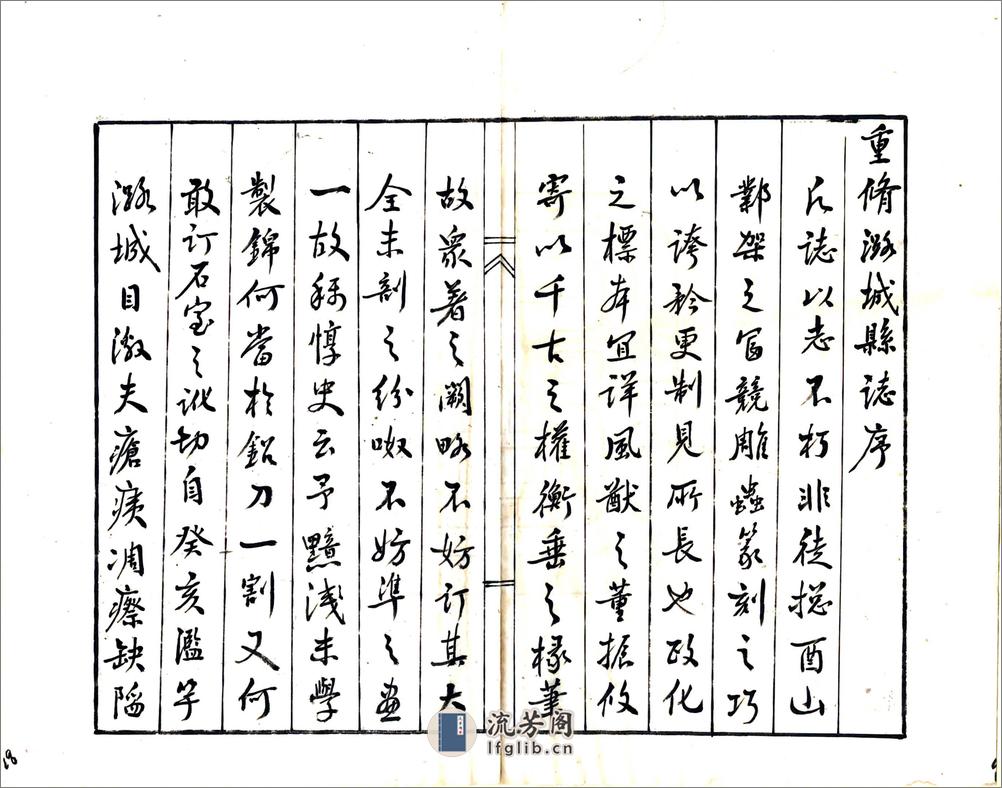 重脩潞城縣誌序
凡誌以志不朽非徒摠酉山
鄴架之富競雕蟲篆刻之巧
以誇矜更制見所長也政化
之標本宜詳風猷之董振攸
寄以千古之權衡垂之椽筆
故衆著之闕略不妨訂其大
全未剖之紛呶不妨準之畫
一故稱惇史云予黯淺未學
製錦何當於鉛刀一割又何
敢訂石室之訛切自癸亥濫竽
潞城目激夫瘡痍凋瘵缺陷
流芳阁
lfglib.cn
18